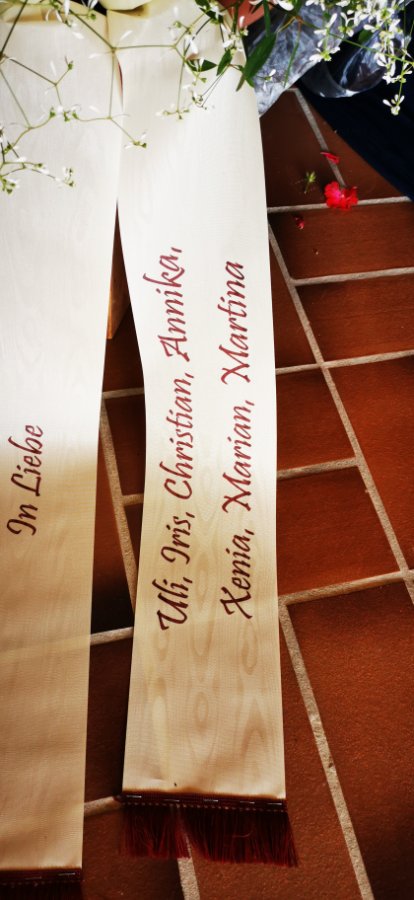 In Liebe
Uli, Iris, Christian, Annika,
Xenia, Marian, Martina